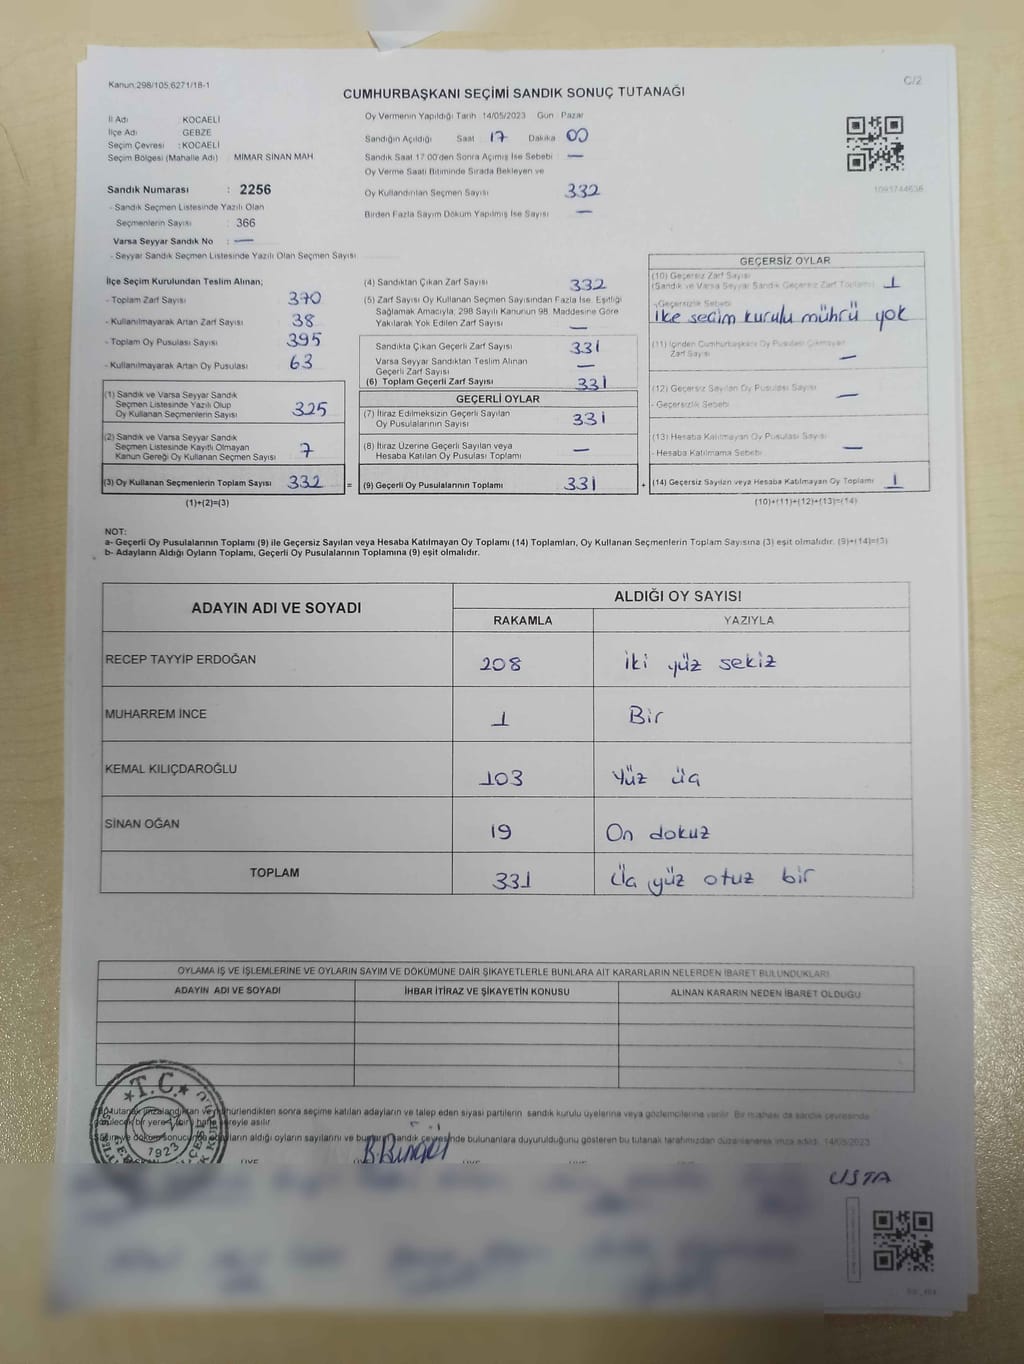 Kanun:298/105,6271/18-1
C/2
CUMHURBAŞKANI SEÇİMİ SANDIK SONUÇ TUTANAĞI
İl Adı KOCAELİ
İlçe Adı GEBZE
Seçim Çevresi : KOCAELİ
Seçim Bölgesi (Mahalle Adı) MİMAR SİNAN MAH
Sandık Numarası : 2256
- Sandık Seçmen Listesinde Yazılı Olan
Seçmenlerin Sayısı : 366
Varsa Seyyar Sandık No : —
- Seyyar Sandık Seçmen Listesinde Yazılı Olan Seçmen Sayısı
Oy Vermenin Yapıldığı Tarih 14/05/2023 Gün Pazar
Sandığın Açıldığı Saat 17 Dakika 00
Sandık Saat 17.00'den Sonra Açılmış İse Sebebi —
Oy Verme Saati Bitiminde Sırada Bekleyen ve
Oy Kullandırılan Seçmen Sayısı 332
Birden Fazla Sayım Döküm Yapılmış İse Sayısı —
1093744636
İlçe Seçim Kurulundan Teslim Alınan;
- Toplam Zarf Sayısı 370
- Kullanılmayarak Artan Zarf Sayısı 38
- Toplam Oy Pusulası Sayısı 395
- Kullanılmayarak Artan Oy Pusulası 63
(1) Sandık ve Varsa Seyyar Sandık
Seçmen Listesinde Yazılı Olup
Oy Kullanan Seçmenlerin Sayısı 325
(2) Sandık ve Varsa Seyyar Sandık
Seçmen Listesinde Kayıtlı Olmayan
Kanun Gereği Oy Kullanan Seçmen Sayısı 7
(3) Oy Kullanan Seçmenlerin Toplam Sayısı 332 =
(1)+(2)=(3)
(4) Sandıktan Çıkan Zarf Sayısı 332
(5) Zarf Sayısı Oy Kullanan Seçmen Sayısından Fazla İse, Eşitliği
Sağlamak Amacıyla, 298 Sayılı Kanunun 98. Maddesine Göre
Yakılarak Yok Edilen Zarf Sayısı —
Sandıkta Çıkan Geçerli Zarf Sayısı 331
Varsa Seyyar Sandıktan Teslim Alınan
Geçerli Zarf Sayısı —
(6) Toplam Geçerli Zarf Sayısı 331
GEÇERLİ OYLAR
(7) İtiraz Edilmeksizin Geçerli Sayılan
Oy Pusulalarının Sayısı 331
(8) İtiraz Üzerine Geçerli Sayılan veya
Hesaba Katılan Oy Pusulası Toplamı —
(9) Geçerli Oy Pusulalarının Toplamı 331 +
GEÇERSİZ OYLAR
(10) Geçersiz Zarf Sayısı
(Sandık ve Varsa Seyyar Sandık Geçersiz Zarf Toplamı) 1
-Geçersizlik Sebebi
ilçe seçim kurulu mührü yok
(11) İçinden Cumhurbaşkanı Oy Pusulası Çıkmayan
Zarf Sayısı —
(12) Geçersiz Sayılan Oy Pusulası Sayısı —
- Geçersizlik Sebebi
(13) Hesaba Katılmayan Oy Pusulası Sayısı
- Hesaba Katılmama Sebebi —
(14) Geçersiz Sayılan veya Hesaba Katılmayan Oy Toplamı 1
(10)+(11)+(12)+(13)=(14)
NOT:
a- Geçerli Oy Pusulaları Toplamı (9) ile Geçersiz Sayılan veya Hesaba Katılmayan Oy Toplamı (14) Toplamları, Oy Kullanan Seçmenlerin Toplam Sayısına (3) eşit olmalıdır. (9)+(14)=(3)
b- Adayların Aldığı Oyların Toplamı, Geçerli Oy Pusulalarının Toplamına (9) eşit olmalıdır.
ADAYIN ADI VE SOYADI ALDIĞI OY SAYISI
RAKAMLA YAZIYLA
RECEP TAYYİP ERDOĞAN 208 iki yüz sekiz
MUHARREM İNCE 1 Bir
KEMAL KILIÇDAROĞLU 103 Yüz üç
SİNAN OĞAN 19 On dokuz
TOPLAM 331 Üç yüz otuz bir
OYLAMA İŞ VE İŞLEMLERİNE VE OYLARIN SAYIM VE DÖKÜMÜNE DAİR ŞİKAYETLERLE BUNLARA AİT KARARLARIN NELERDEN İBARET BULUNDUKLARI
ADAYIN ADI VE SOYADI İHBAR İTİRAZ VE ŞİKAYETİN KONUSU ALINAN KARARIN NEDEN İBARET OLDUĞU
T.C.
1923
mühürlendikten sonra seçime katılan adayların ve talep eden siyasi partilerin sandık kurulu üyelerine veya gözlemcilerine verilir. Bir nüshası da sandık çevresinde
asılır
adayların aldığı oyların sayılarını ve bunların sandık çevresinde bulunanlara duyurulduğunu gösteren bu tutanak tarafımızdan düzenlenerek imza edildi. 14/05/2023
USTA